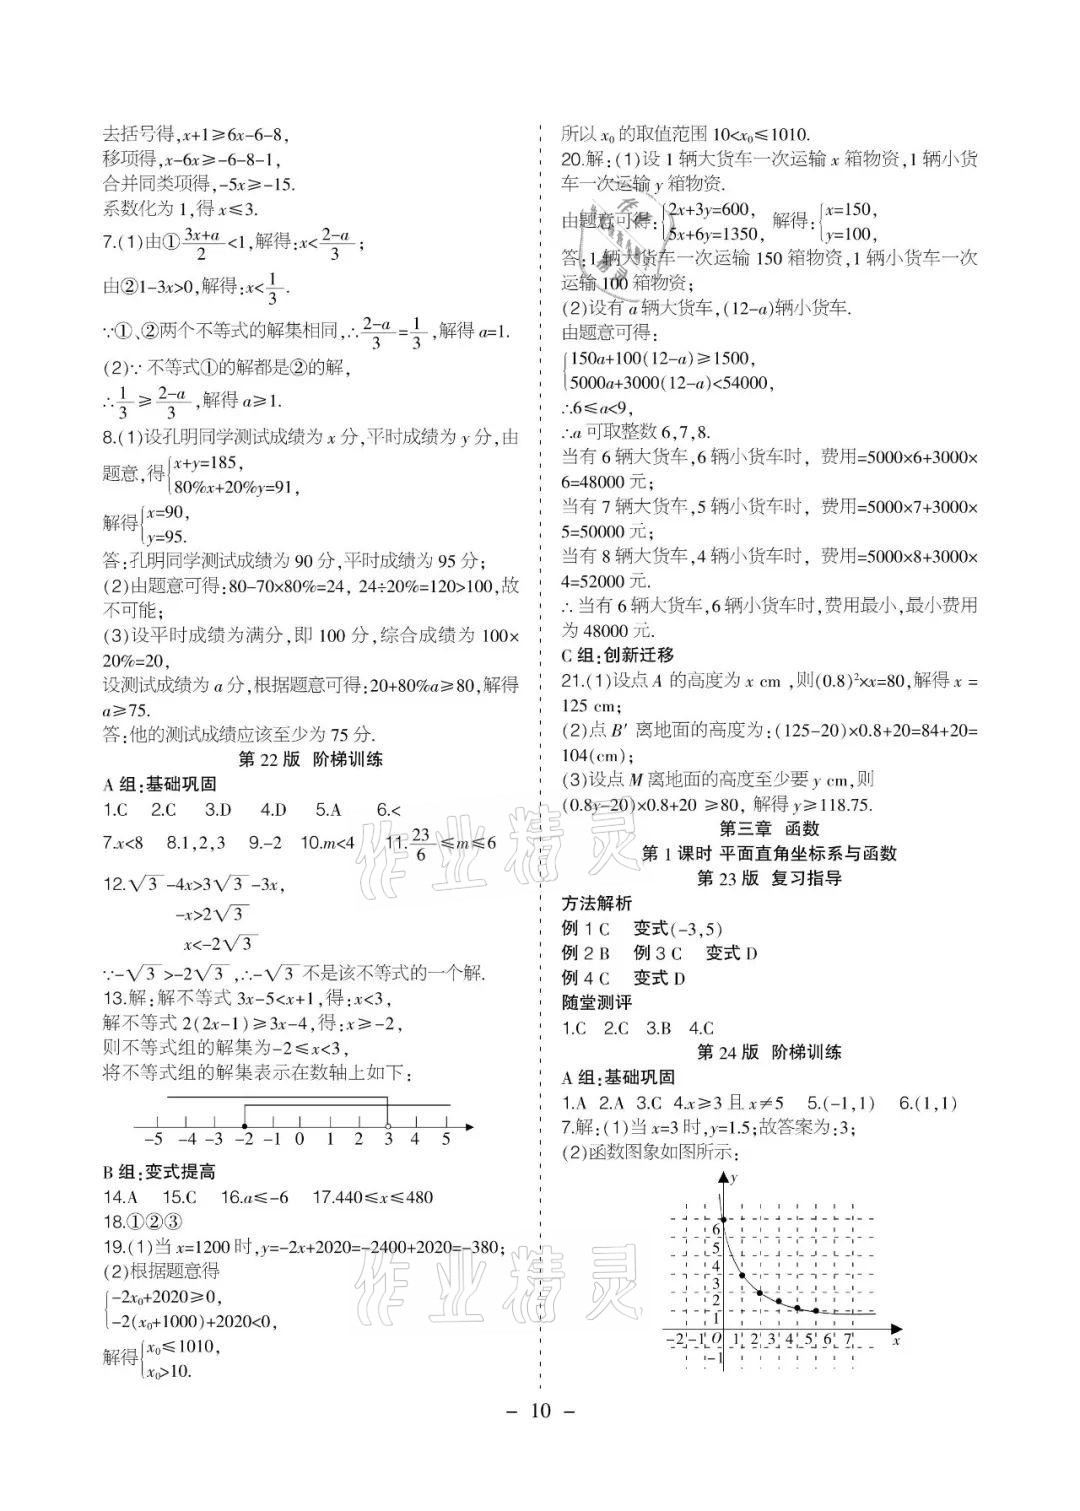 去括号得,x+1≥6x-6-8,
移项得,x-6x≥-6-8-1,
合并同类项得,-5x≥-15.
系数化为 1,得 x≤3.
7.(1)由①(3x+a)/2<1,解得:x<(2-a)/3;
由②1-3x>0,解得:x<1/3.
∵①、②两个不等式的解集相同,∴(2-a)/3=1/3,解得 a=1.
(2)∵不等式①的解都是②的解,
∴1/3≥(2-a)/3,解得 a≥1.
8.(1)设孔明同学测试成绩为 x 分,平时成绩为 y 分,由
题意,得{x+y=185,
80%x+20%y=91,
解得{x=90,
y=95.
答:孔明同学测试成绩为 90 分,平时成绩为 95 分;
(2)由题意可得:80-70×80%=24, 24÷20%=120>100,故
不可能;
(3)设平时成绩为满分,即 100 分,综合成绩为 100×
20%=20,
设测试成绩为 a 分,根据题意可得:20+80%a≥80,解得
a≥75.
答:他的测试成绩应该至少为 75 分.
第 22 版 阶梯训练
A 组:基础巩固
1.C 2.C 3.D 4.D 5.A 6.<
7.x<8 8.1,2,3 9.-2 10.m<4 11.23/6≤m≤6
12.√3-4x>3√3-3x,
-x>2√3
x<-2√3
∵-√3>-2√3,∴-√3不是该不等式的一个解.
13.解:解不等式 3x-5<x+1,得:x<3,
解不等式 2(2x-1)≥3x-4,得:x≥-2,
则不等式组的解集为-2≤x<3,
将不等式组的解集表示在数轴上如下:
-5 -4 -3 -2 -1 0 1 2 3 4 5
B 组:变式提高
14.A 15.C 16.a≤-6 17.440≤x≤480
18.①②③
19.(1)当 x=1200 时,y=-2x+2020=-2400+2020=-380;
(2)根据题意得
{-2x₀+2020≥0,
-2(x₀+1000)+2020<0,
解得{x₀≤1010,
x₀>10.
所以 x₀ 的取值范围 10<x₀≤1010.
20.解:(1)设 1 辆大货车一次运输 x 箱物资,1 辆小货
车一次运输 y 箱物资.
由题意可得:{2x+3y=600, 解得:{x=150,
5x+6y=1350, y=100,
答:1 辆大货车一次运输 150 箱物资,1 辆小货车一次
运输 100 箱物资;
(2)设有 a 辆大货车,(12-a)辆小货车.
由题意可得:
{150a+100(12-a)≥1500,
5000a+3000(12-a)<54000,
∴6≤a<9,
∴a 可取整数 6,7,8.
当有 6 辆大货车,6 辆小货车时, 费用=5000×6+3000×
6=48000 元;
当有 7 辆大货车,5 辆小货车时, 费用=5000×7+3000×
5=50000 元;
当有 8 辆大货车,4 辆小货车时, 费用=5000×8+3000×
4=52000 元.
∴当有 6 辆大货车,6 辆小货车时,费用最小,最小费用
为 48000 元.
C 组:创新迁移
21.(1)设点 A 的高度为 x cm ,则(0.8)²×x=80,解得 x =
125 cm;
(2)点 B′ 离地面的高度为:(125-20)×0.8+20=84+20=
104(cm);
(3)设点 M 离地面的高度至少要 y cm,则
(0.8y-20)×0.8+20 ≥80, 解得 y≥118.75.
第三章 函数
第 1 课时 平面直角坐标系与函数
第 23 版 复习指导
方法解析
例 1 C 变式(-3,5)
例 2 B 例 3 C 变式 D
例 4 C 变式 D
随堂测评
1.C 2.C 3.B 4.C
第 24 版 阶梯训练
A 组:基础巩固
1.A 2.A 3.C 4.x≥3 且 x≠5 5.(-1,1) 6.(1,1)
7.解:(1)当 x=3 时,y=1.5;故答案为:3;
(2)函数图象如图所示:
y
6
5
4
3
2
1
-2 -1 O 1 2 3 4 5 6 7 x
-1
- 10 -
作业精灵
作业精灵
作业精灵